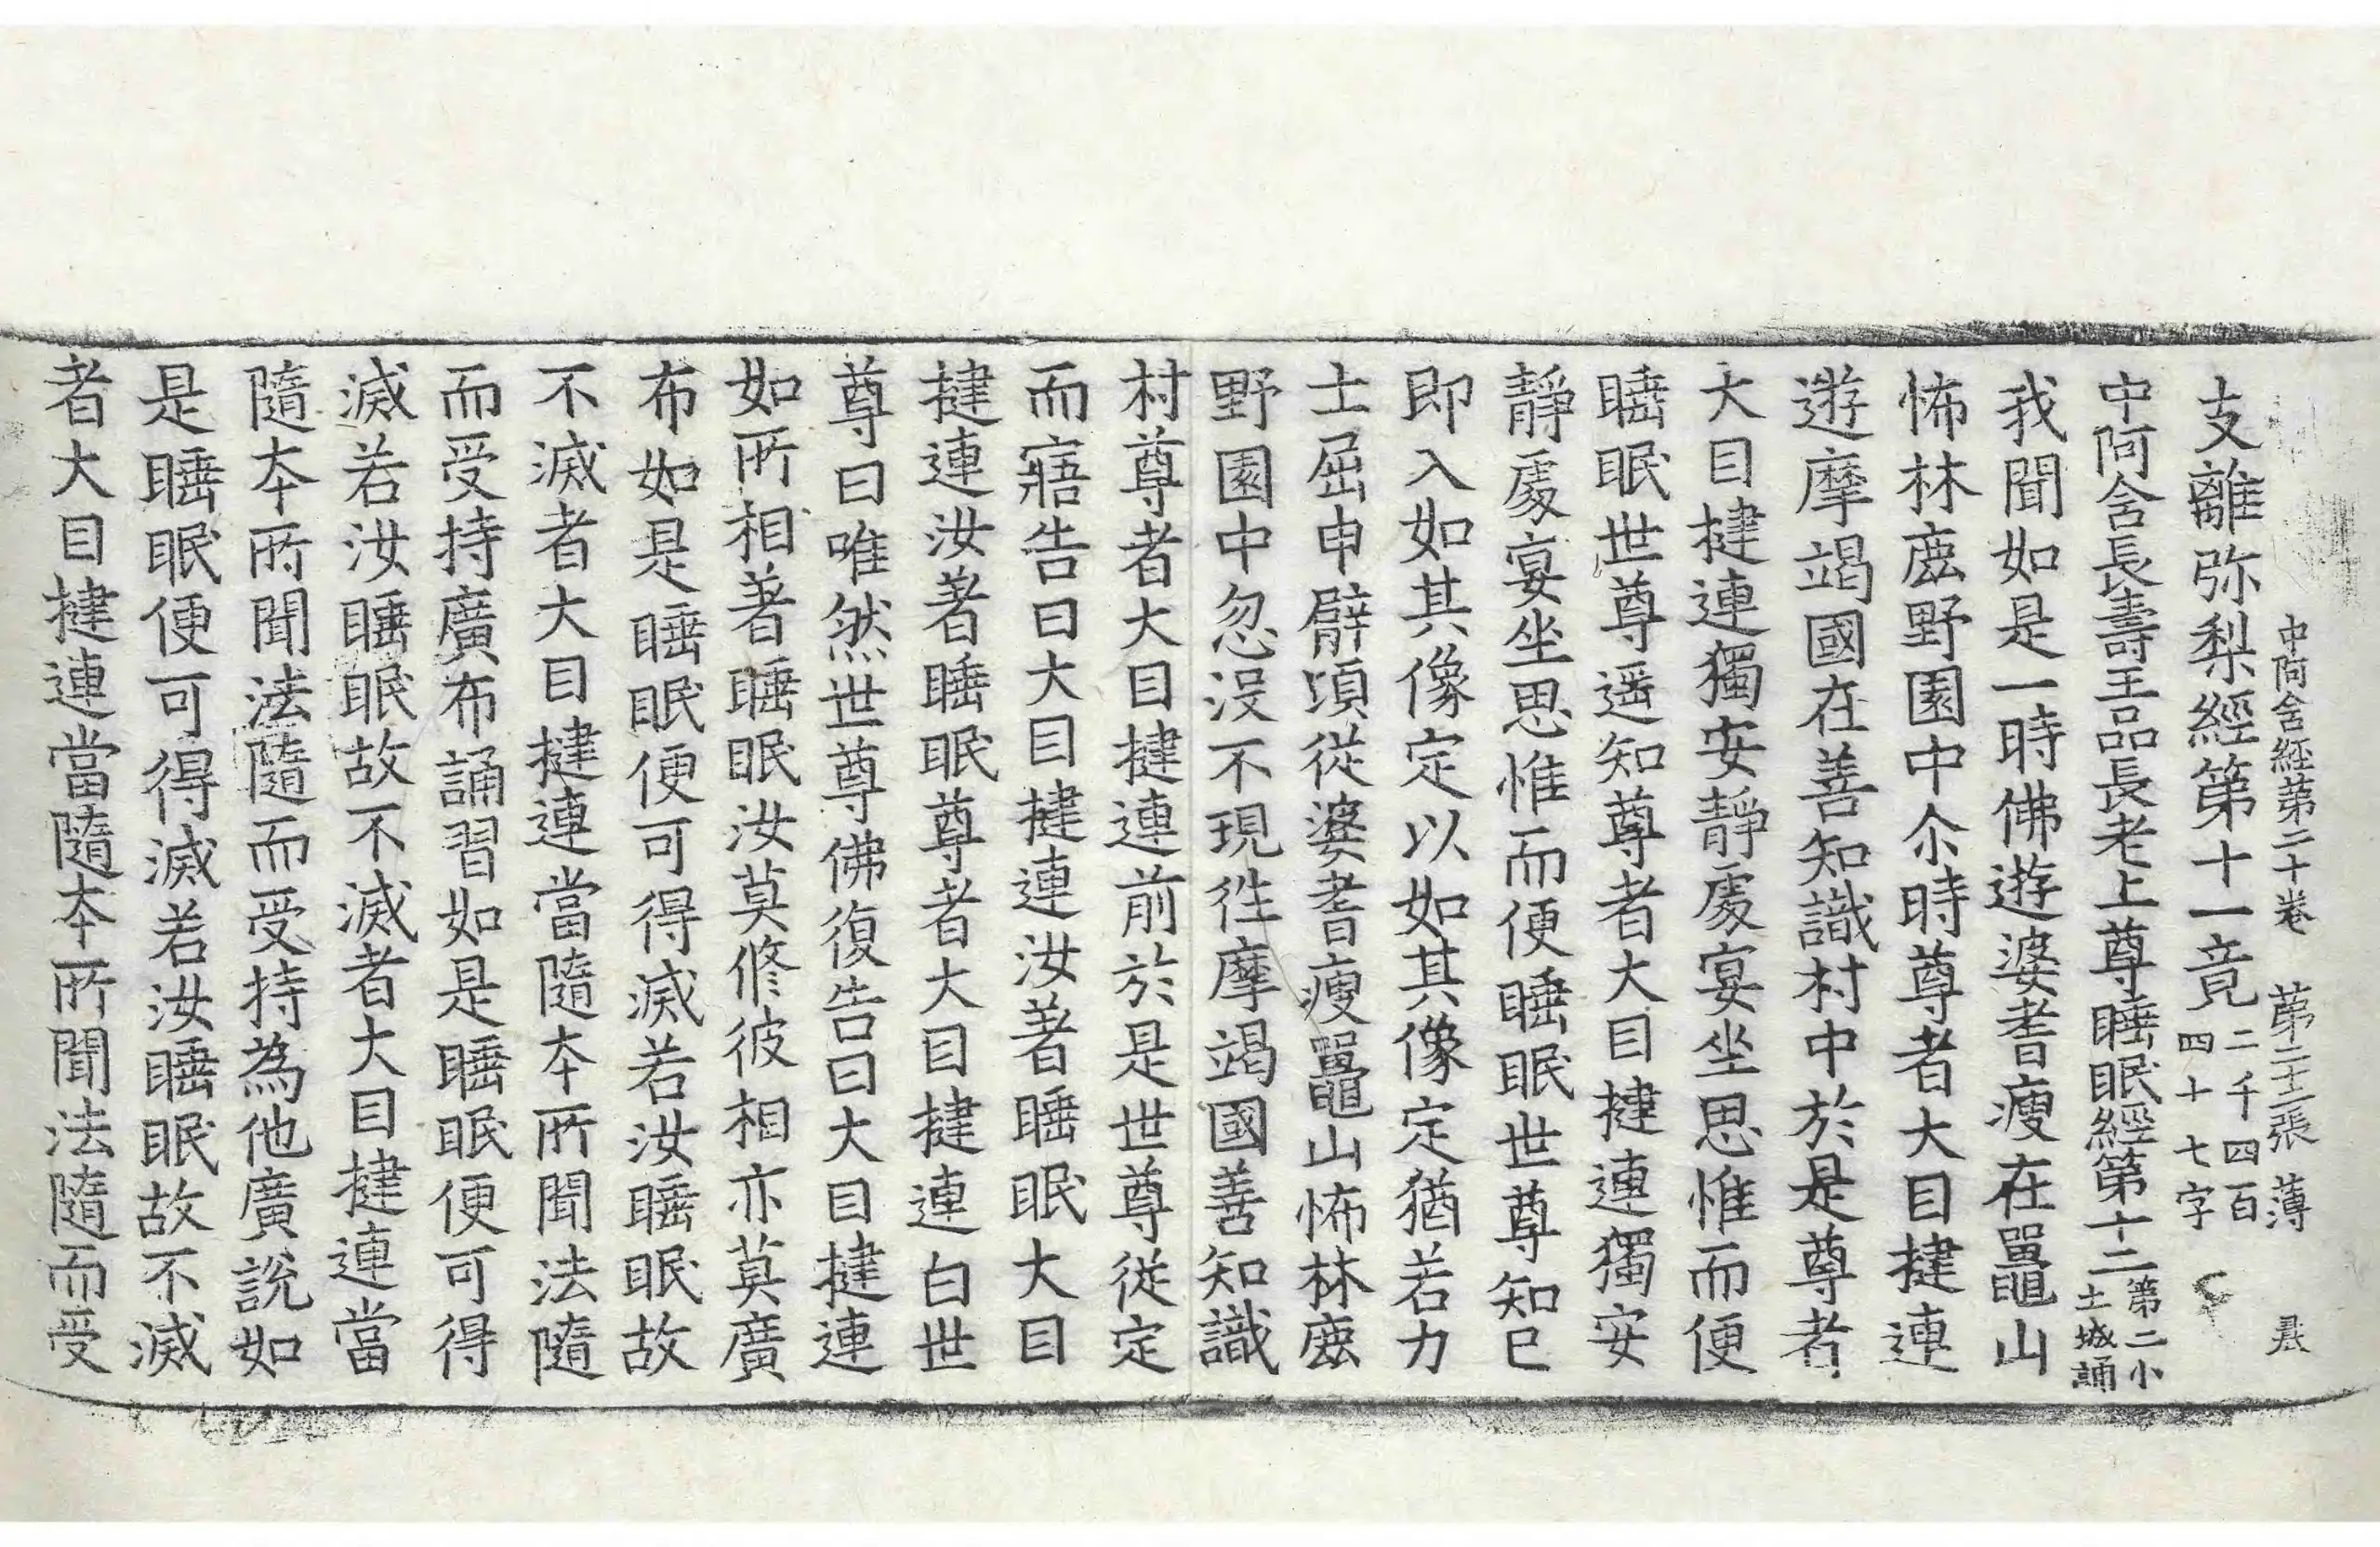 中阿含經第二十卷 第二十二張 薄
支離弥梨經第十一竟 二千四百四十七字
中阿含長壽王品長老上尊睡眠經第十二 第二小土城誦
我聞如是一時佛遊婆耆瘦在鼉山
怖林鹿野園中尒時尊者大目揵連
遊摩竭國在善知識村中於是尊者
大目揵連獨安靜處宴坐思惟而便
睡眠世尊遥知尊者大目揵連獨安
靜處宴坐思惟而便睡眠世尊知已
即入如其像定以如其像定猶若力
士屈申臂頃從婆耆瘦鼉山怖林鹿
野園中忽沒不現徃摩竭國善知識
村尊者大目揵連前於是世尊從定
而寤告曰大目揵連汝著睡眠大目
揵連汝著睡眠尊者大目揵連白世
尊曰唯然世尊佛復告曰大目揵連
如所相著睡眠汝莫修彼相亦莫廣
布如是睡眠便可得滅若汝睡眠故
不滅者大目揵連當隨本所聞法隨
而受持廣布誦習如是睡眠便可得
滅若汝睡眠故不滅者大目揵連當
隨本所聞法隨而受持為他廣說如
是睡眠便可得滅若汝睡眠故不滅
者大目揵連當隨本所聞法隨而受